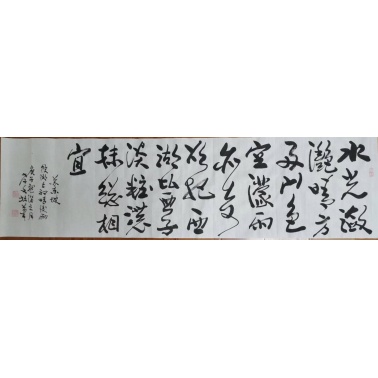 水光瀲
灧晴方
好山色
空濛雨
亦奇
欲把西
湖比西子
淡粧濃
抹總相
宜
蘇東坡
飲湖上初晴後雨